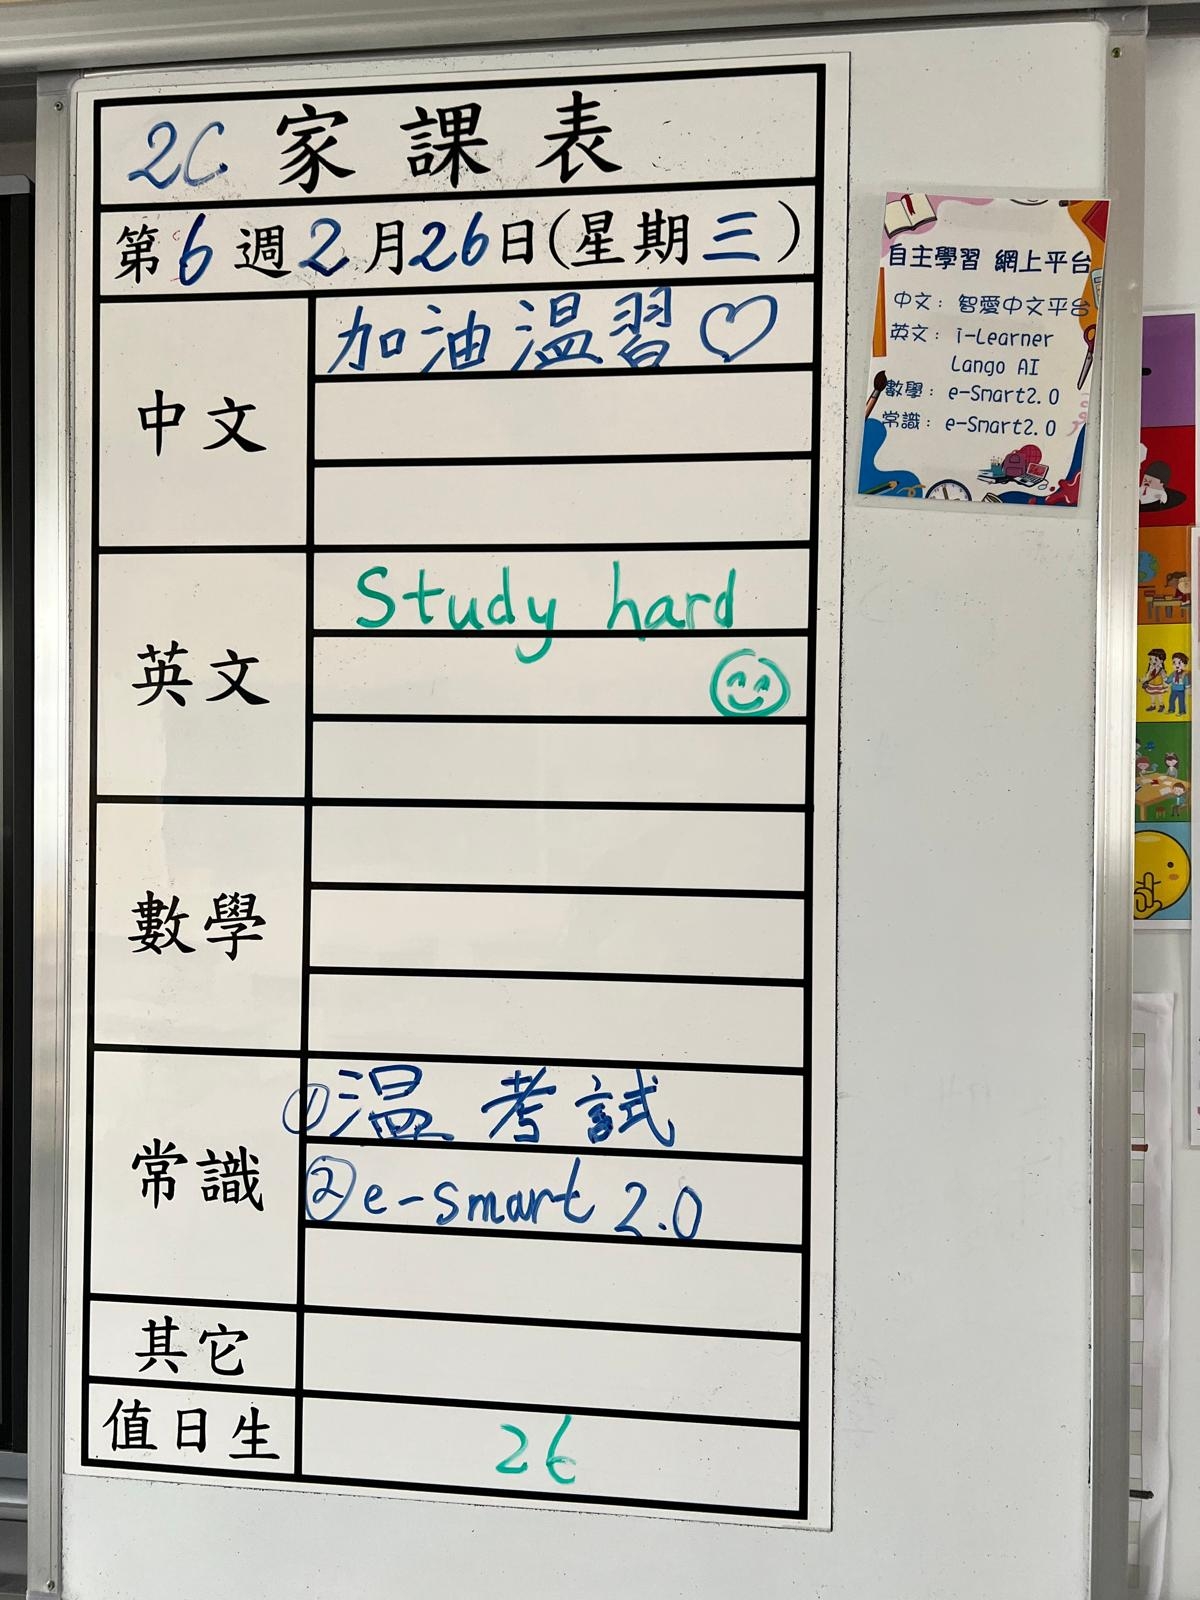 2C 家課表
第6週2月26日(星期三)
中文
加油溫習♡
英文
Study hard
數學
常識
①溫 考試
②e-smart 2.0
其它
值日生
26
自主學習 網上平台
中文：智愛中文平台
英文：i-Learner
Lango AI
數學：e-Smart2.0
常識：e-Smart2.0